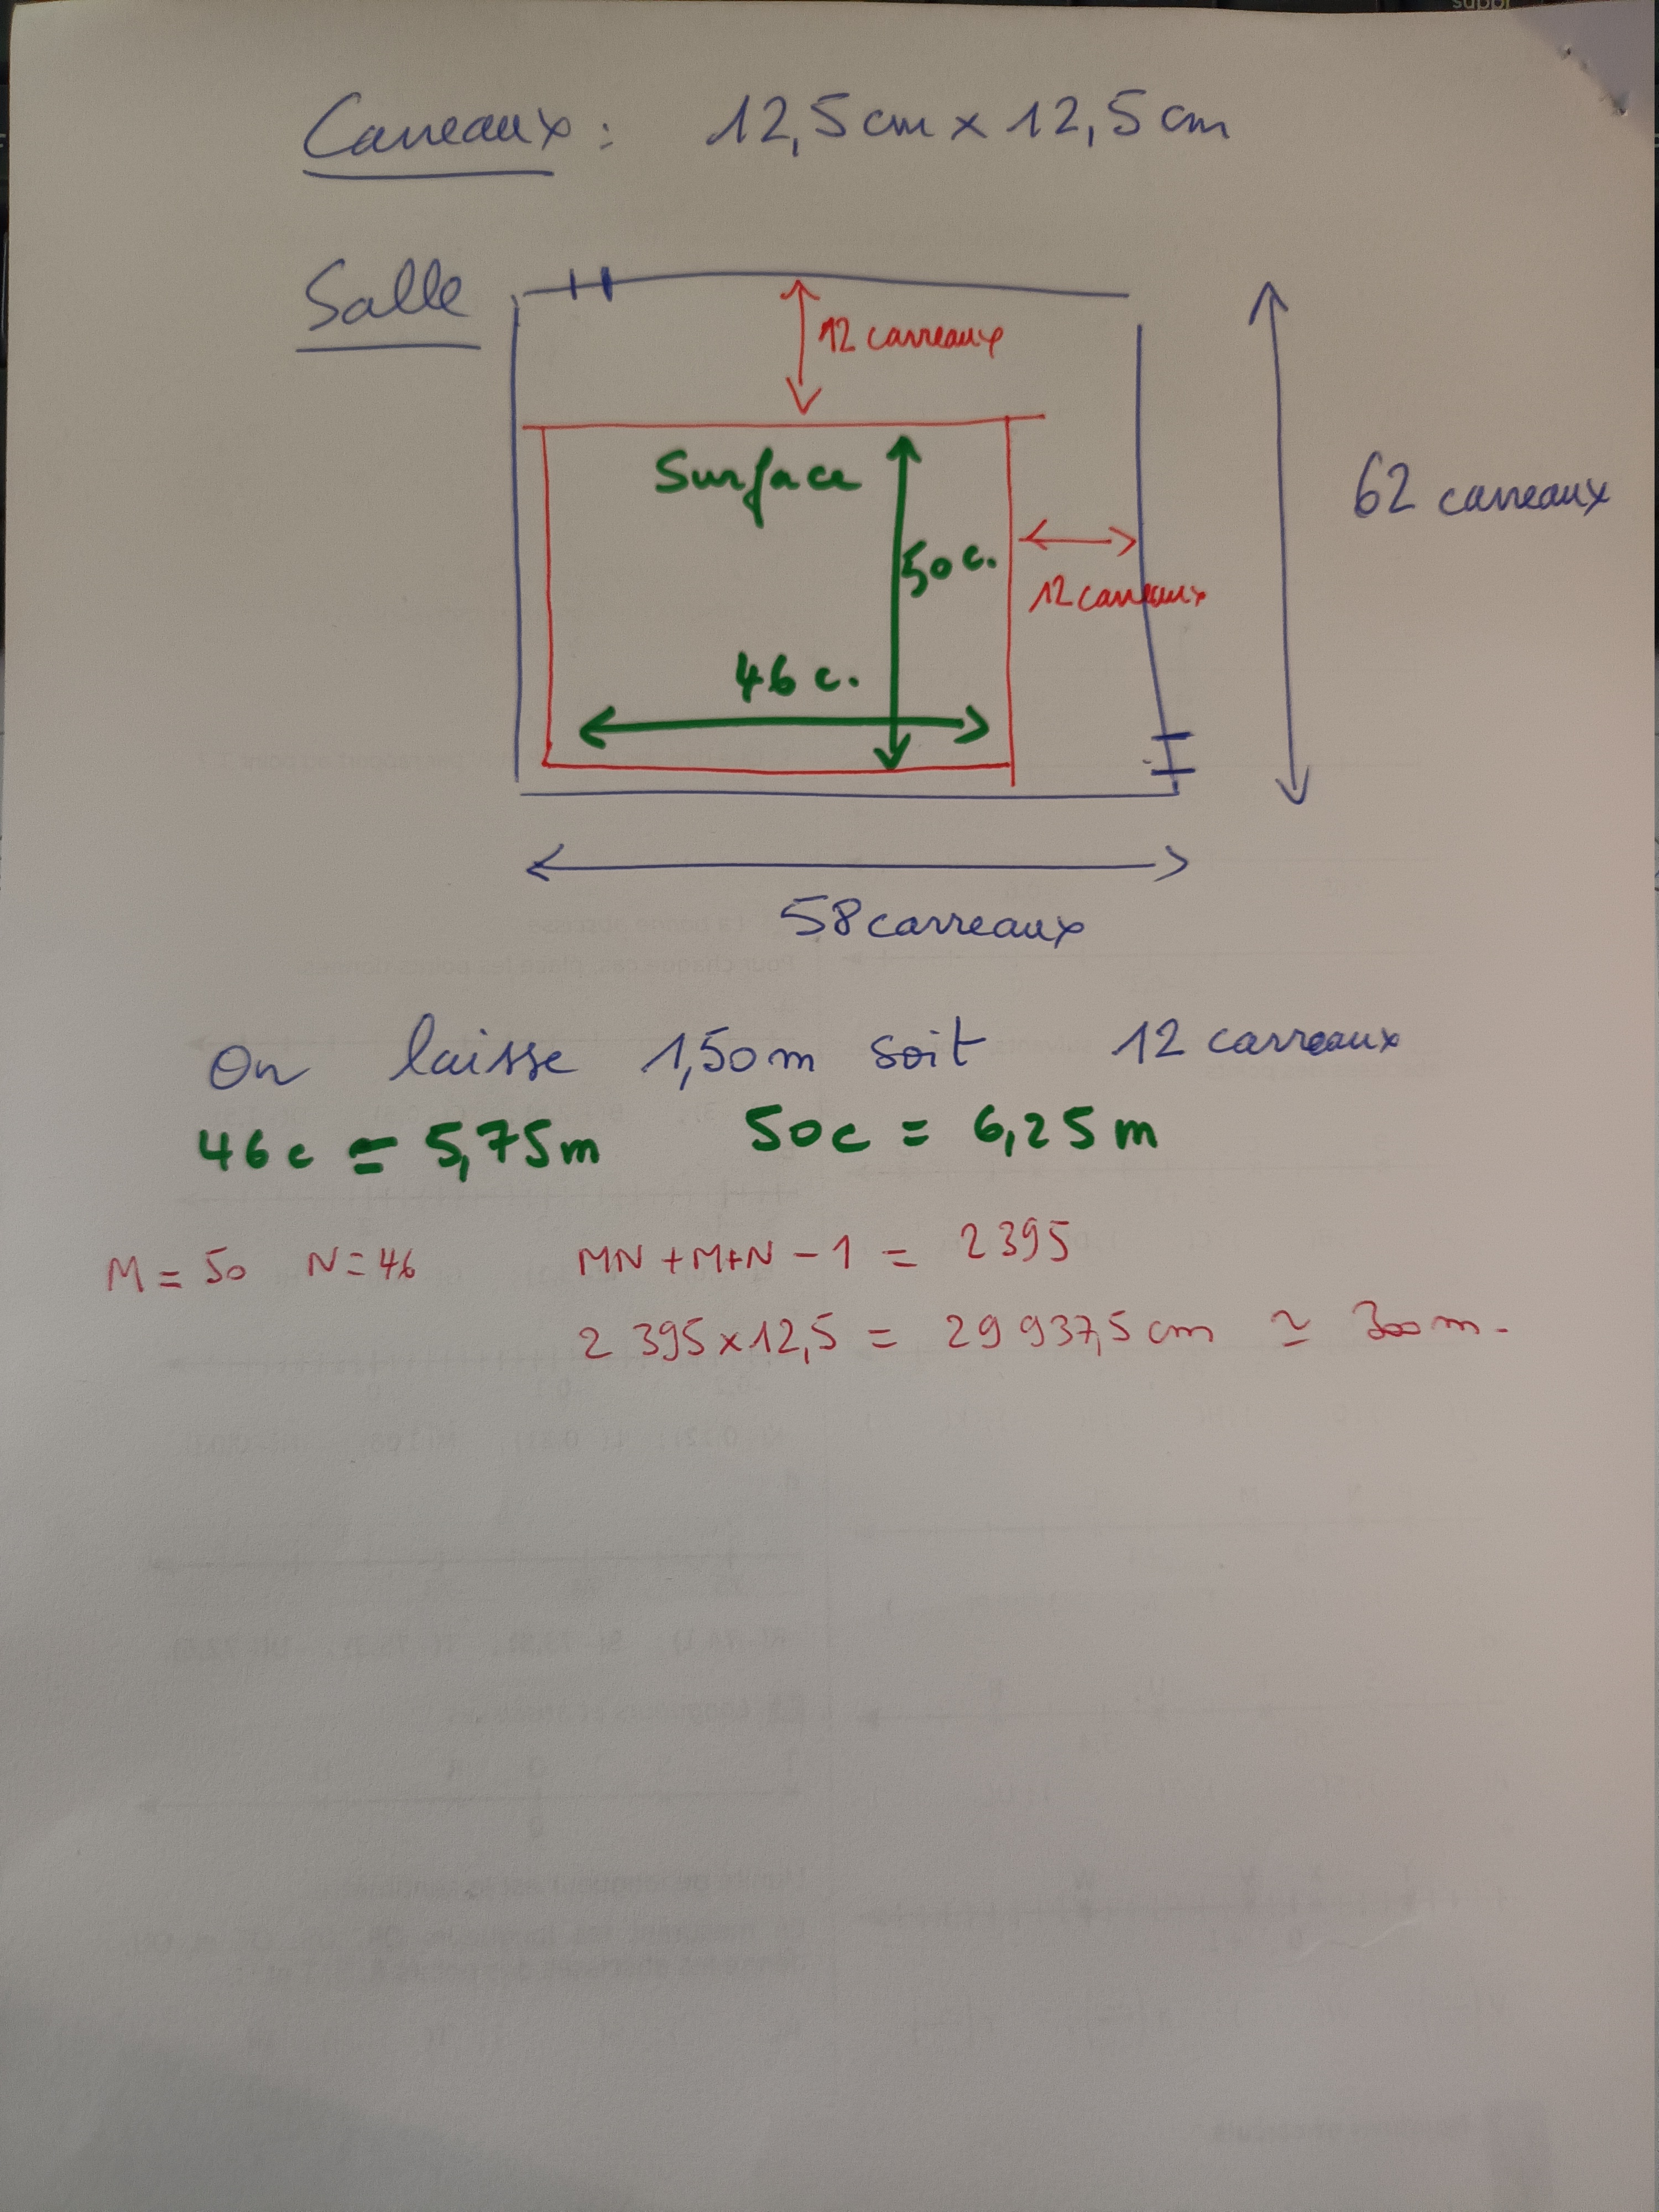 Carreaux : 12,5 cm x 12,5 cm
Salle
12 carreaux
Surface
50 c.
62 carreaux
12 carreaux
46 c.
58 carreaux
On laisse 1,50 m soit 12 carreaux
46 c = 5,75 m 50 c = 6,25 m
M = 50 N = 46 MN + M + N - 1 = 2395
2 395 x 12,5 = 29 937,5 cm ≃ 300 m.